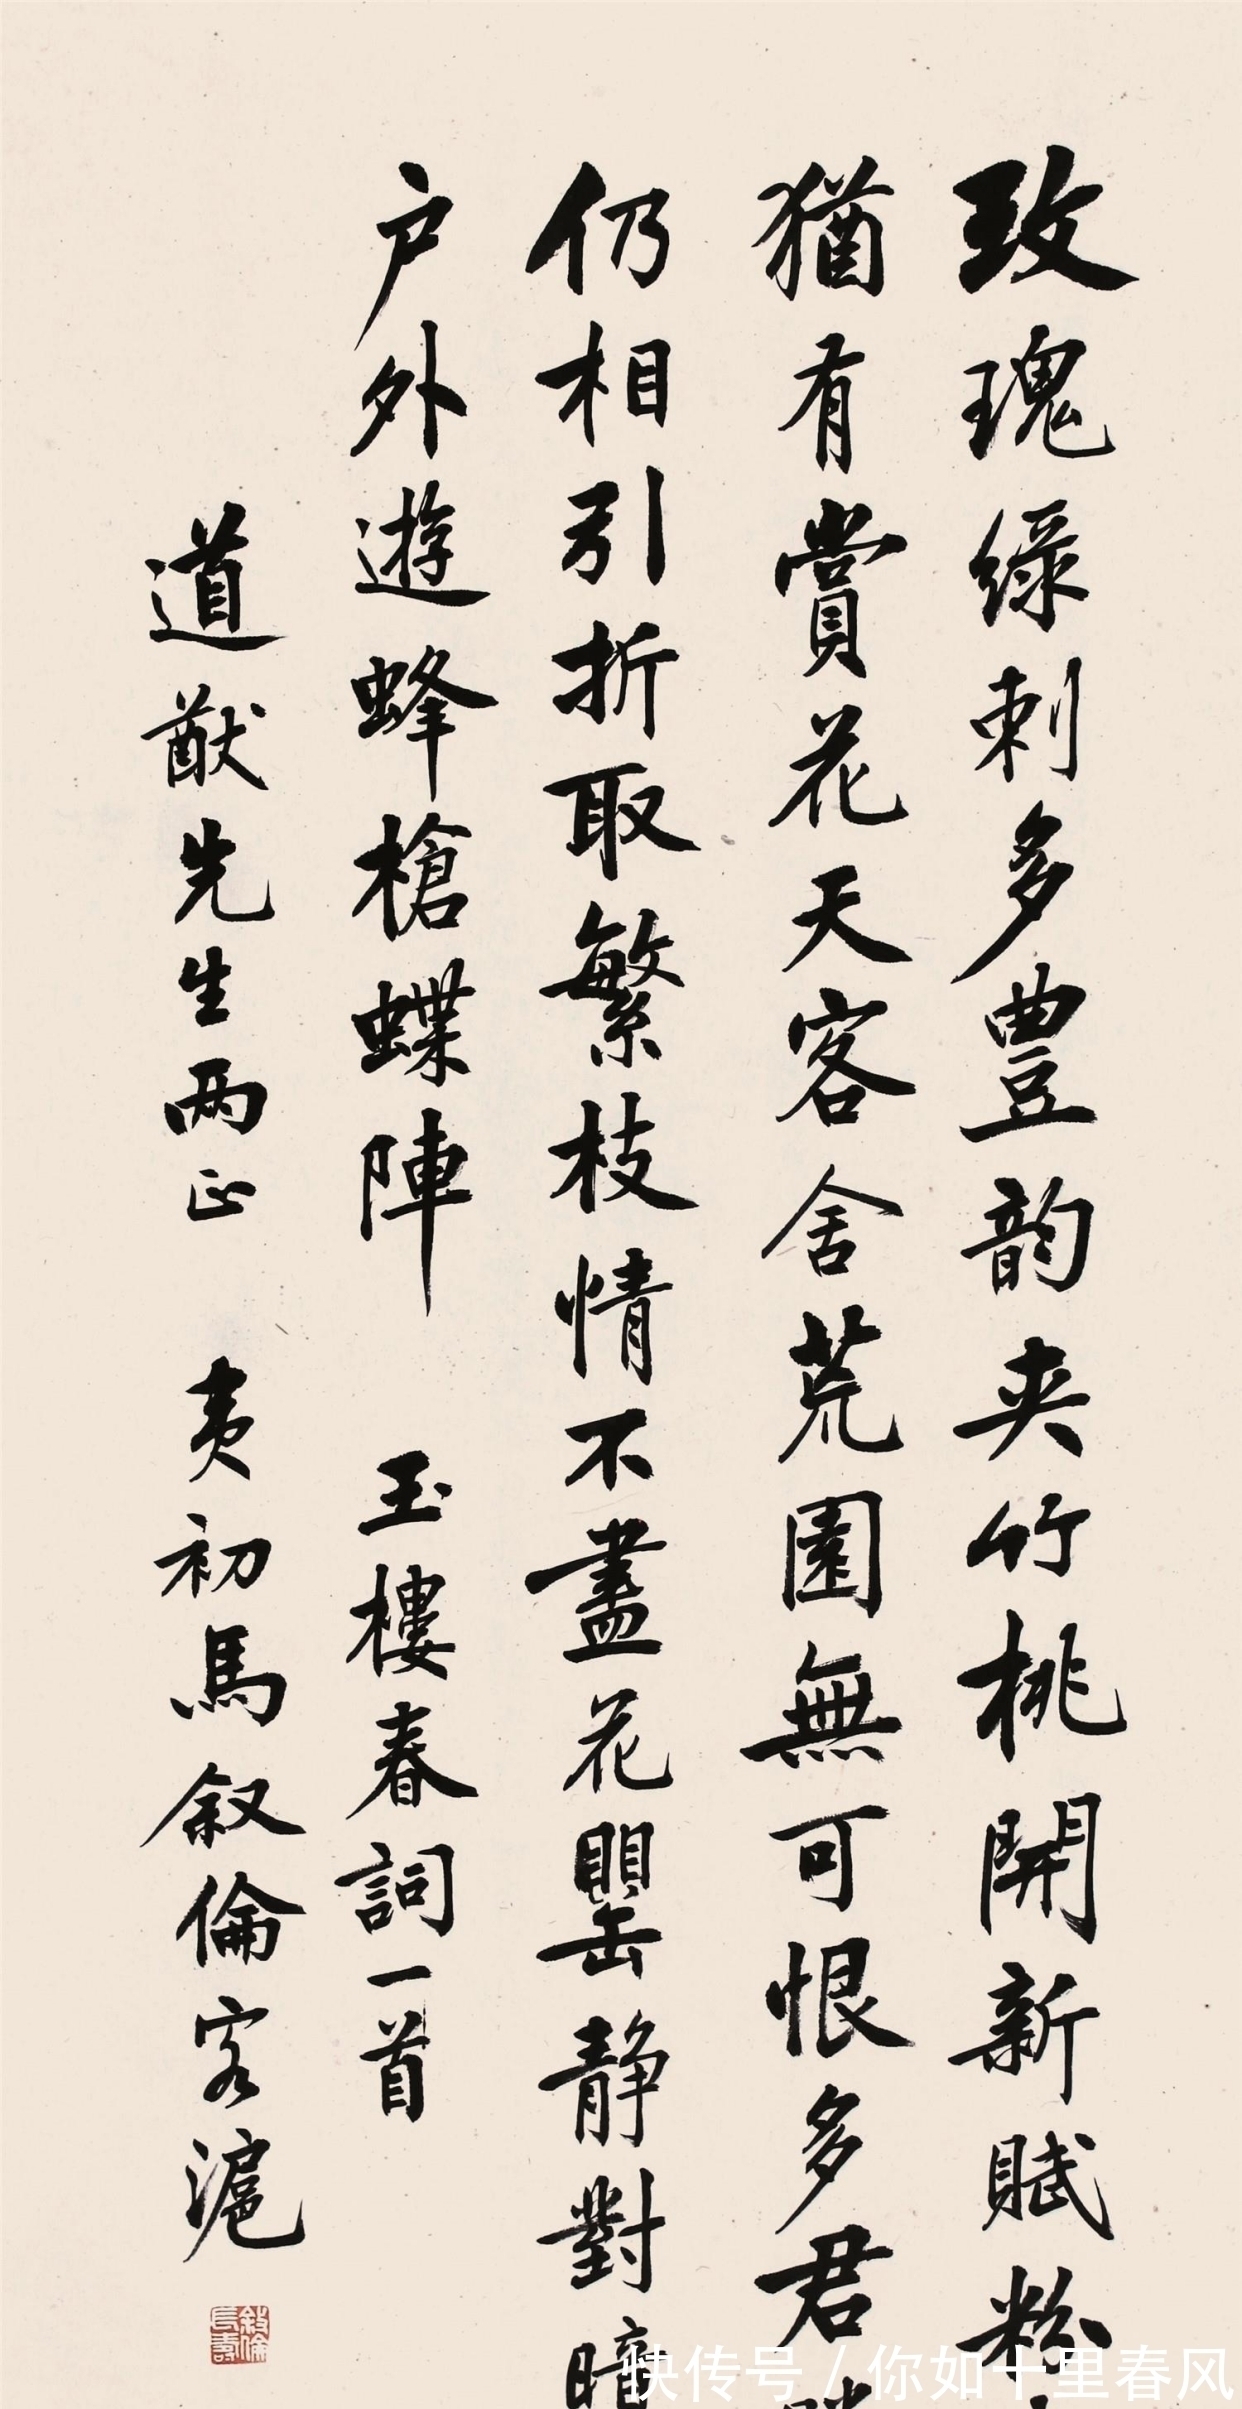 玫瑰綠刺多豊韵夾竹桃開新賦粉
猶有賞花天客舍荒園無可恨多君
仍相引折取繁枝情不盡花罌静對暗
户外遊蜂槍蝶陣 玉樓春詞一首
道猷先生两正 夷初馬叙倫客滬
叙倫長壽
快传号/你如十里春风